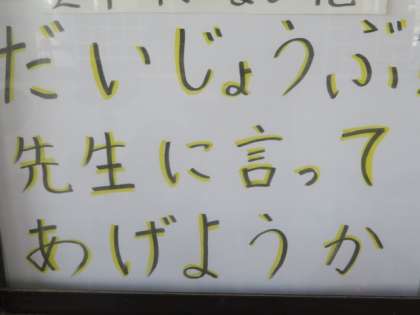 だいじょうぶ
先生に言って
あげようか